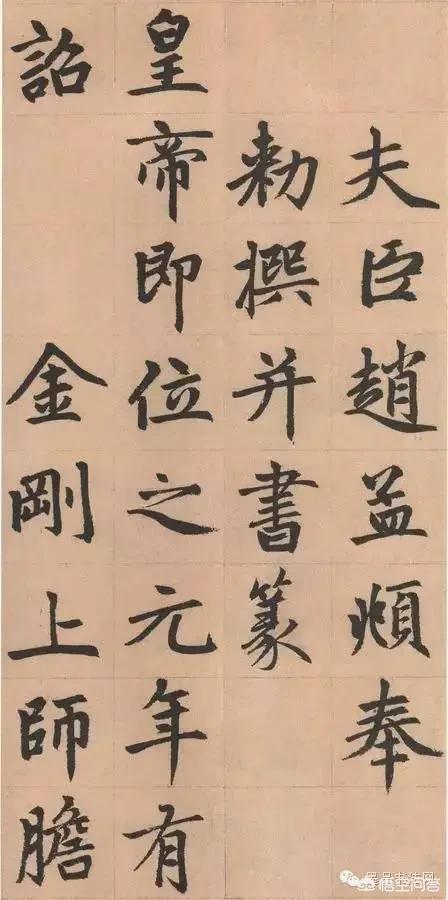 夫臣趙孟頫奉
勅撰并書篆
皇帝即位之元年有
詔金剛上師膽
悟空问答